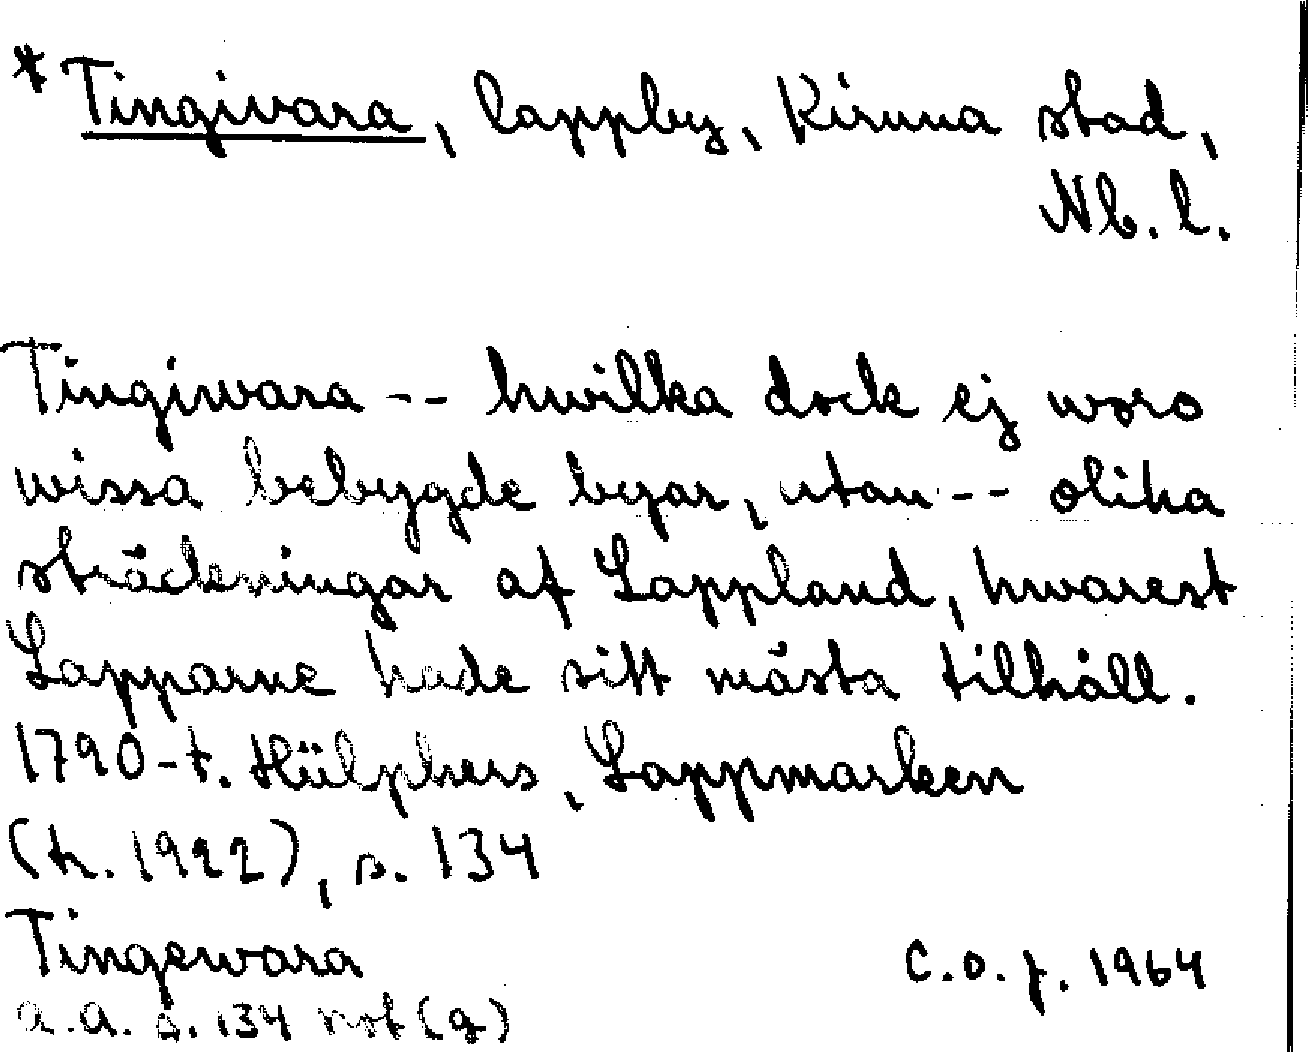 * Tingivara, lappby, Kiruna stad,
Nb. l.
Tingiwara -- hwilka dock ej woro
wissa bebygde byar, utan -- olika
sträckningar af Lappland, hwarest
Lapparne hade sitt mästa tilhåll.
1790-t. Hülphers, Lappmarken
(tr. 1922), s. 134
Tingewara
C.O.J. 1964
a.a. s. 134 not (g)